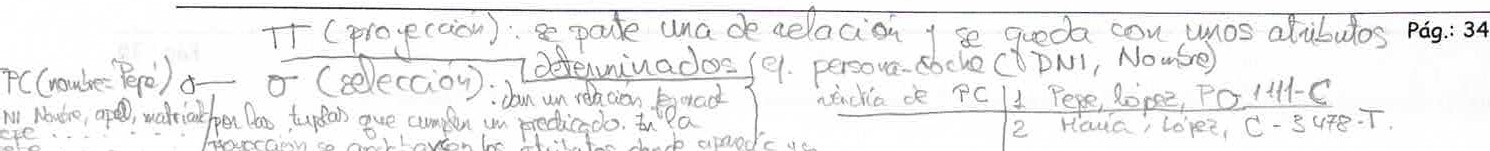 Pág.: 34
π (proyección): se parte una de relación y se queda con unos atributos
determinados (ej. persona-coche (DNI, Nombre)
PC (nombre='Pepe') σ— σ (selección): dan un relación formad
por las tuplas que cumplen un predicado. En la
Nombre, apell, matricula
de PC | 1 Pepe, López, PO 1111-C
2 María, López, C-3478-T.